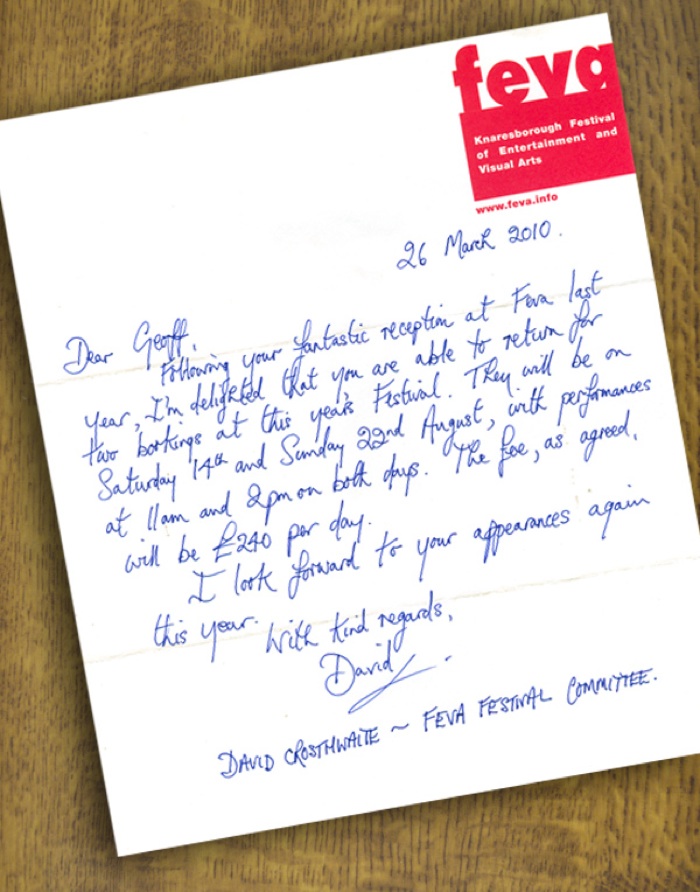 feva
Knaresborough Festival
of Entertainment and
Visual Arts
www.feva.info
26 March 2010.
Dear Geoff,
Following your fantastic reception at Feva last
year, I'm delighted that you are able to return for
two bookings at this year's Festival. They will be on
Saturday 14th and Sunday 22nd August, with performances
at 11am and 2pm on both days. The fee, as agreed,
will be £240 per day.
I look forward to your appearances again
this year.
With kind regards,
David
DAVID CROSTHWAITE ~ FEVA FESTIVAL COMMITTEE.